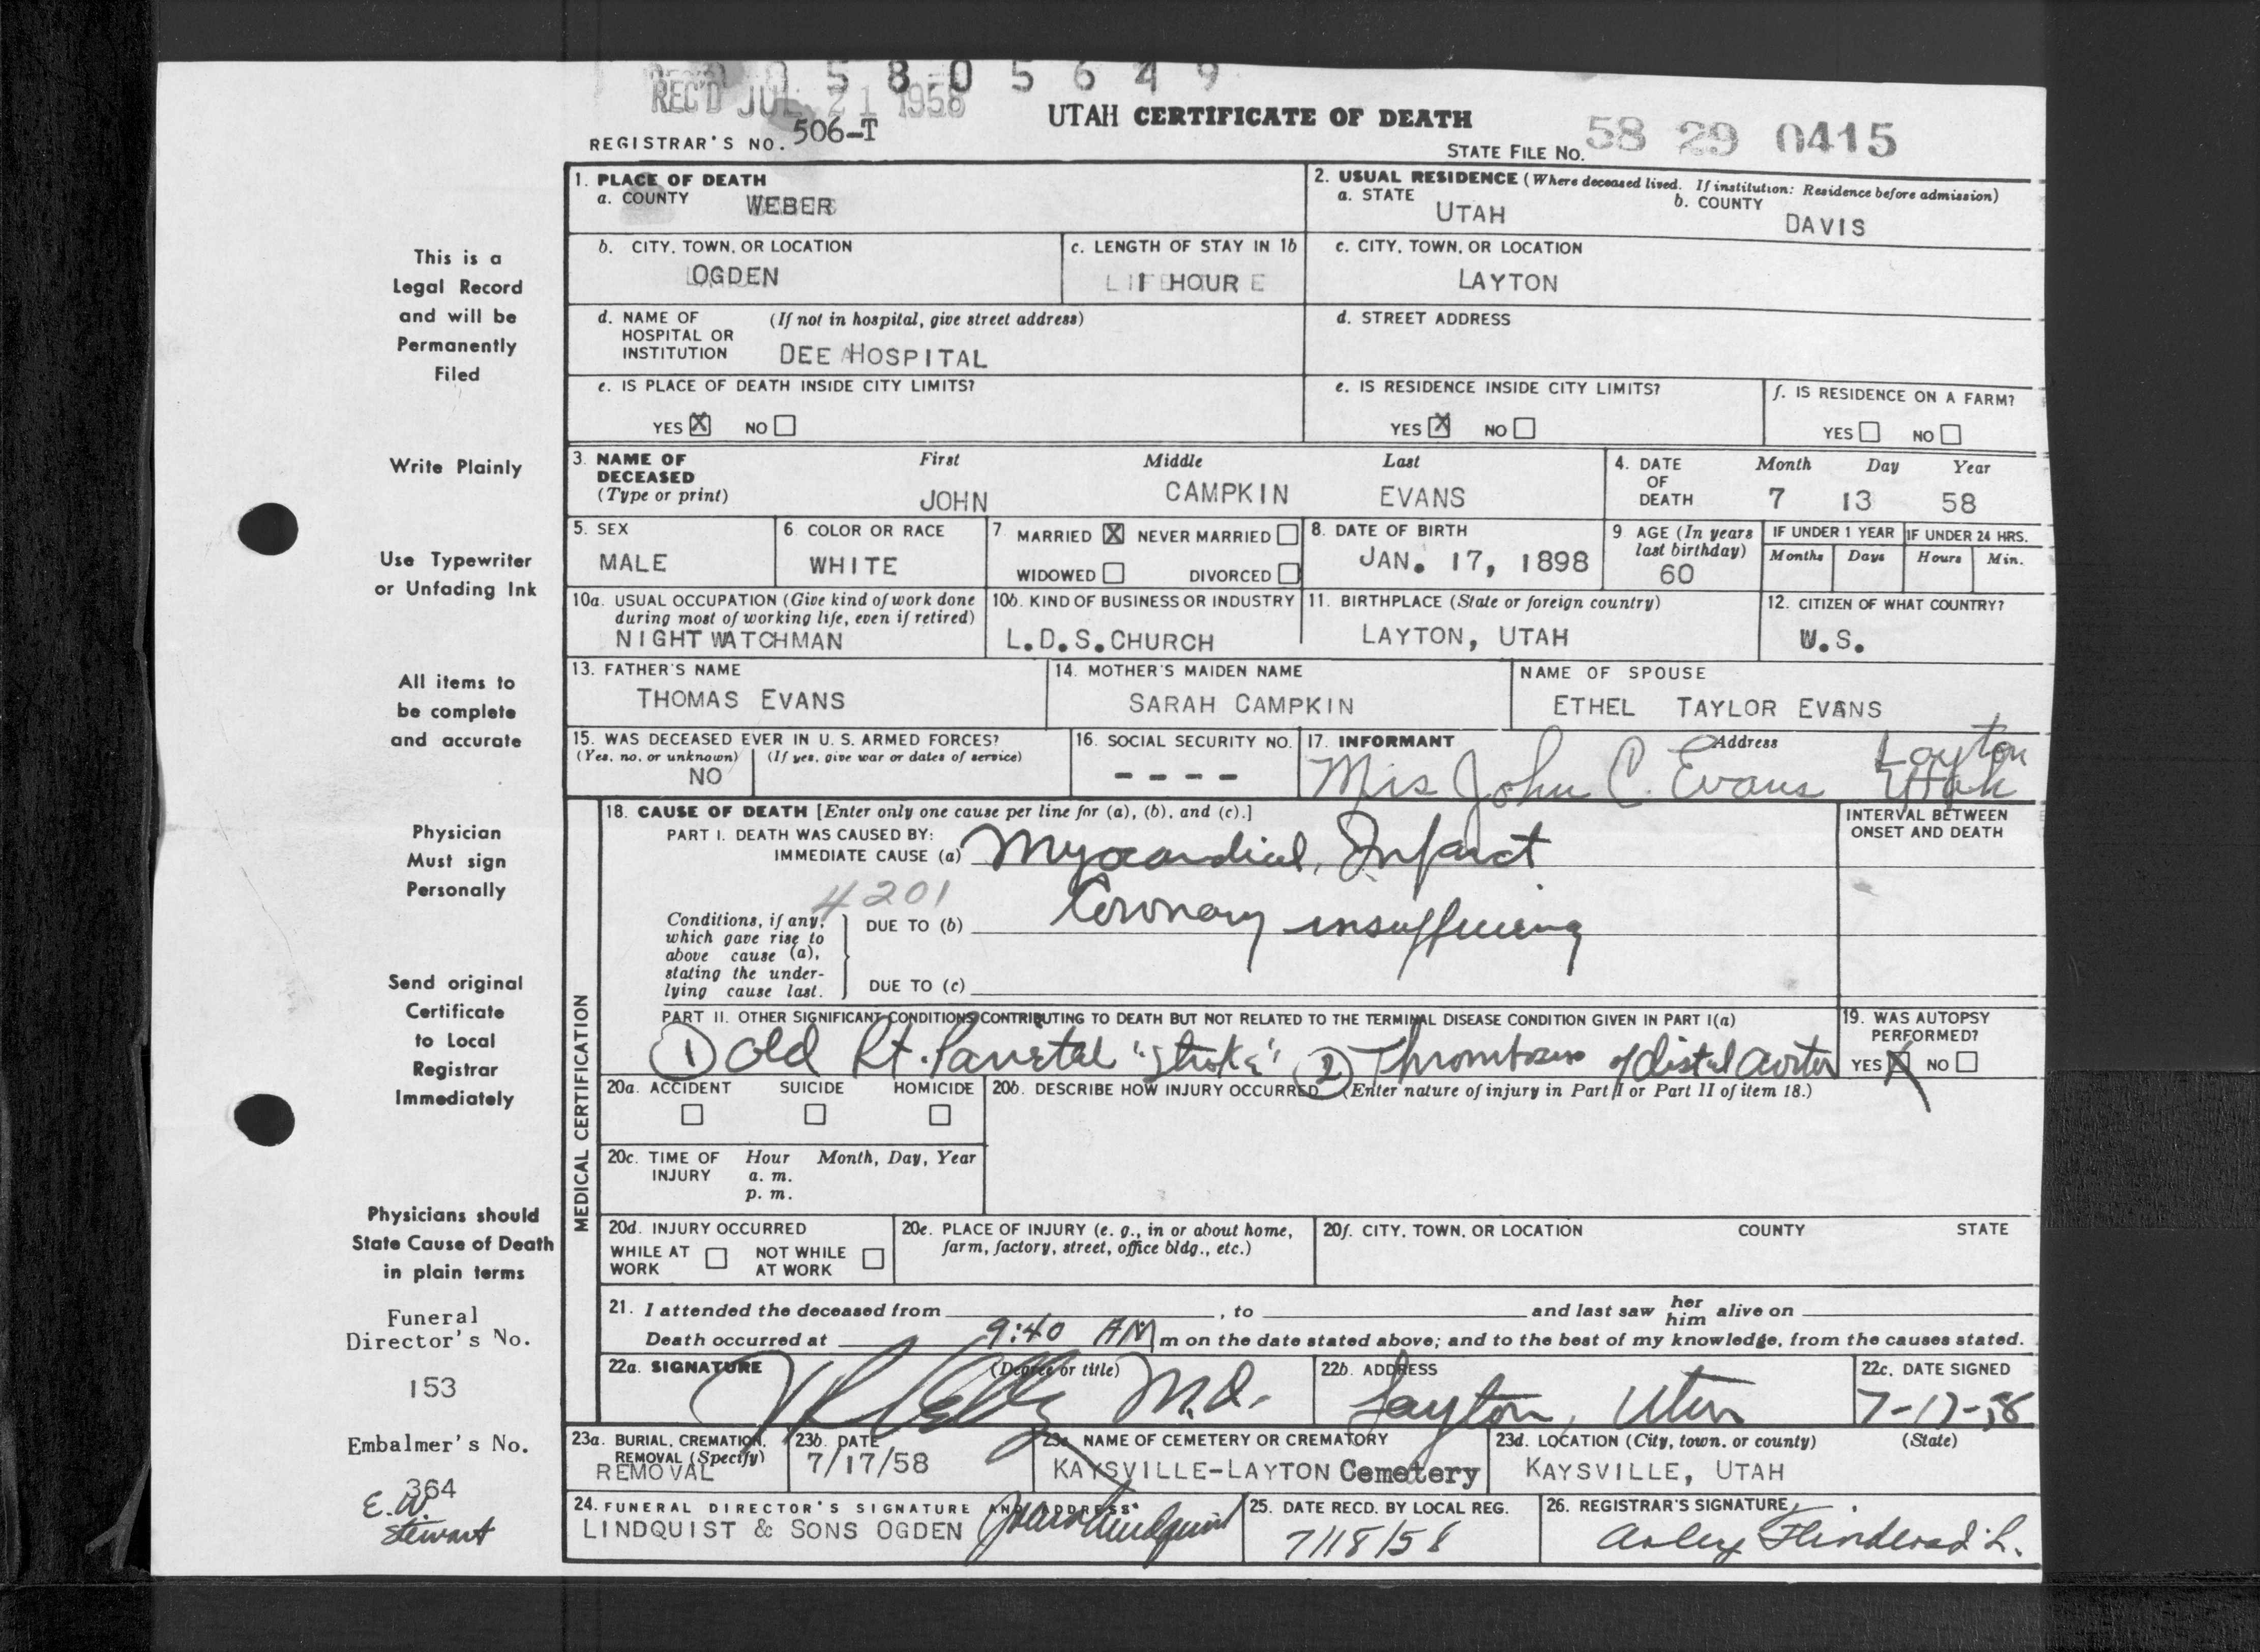 5 8 0 5 6 4 9
REC'D JUL 21 1958
UTAH CERTIFICATE OF DEATH
REGISTRAR'S NO. 506-T
STATE FILE No. 58 29 0415
This is a
Legal Record
and will be
Permanently
Filed
Write Plainly
Use Typewriter
or Unfading Ink
All items to
be complete
and accurate
Physician
Must sign
Personally
Send original
Certificate
to Local
Registrar
Immediately
Physicians should
State Cause of Death
in plain terms
Funeral
Director's No.
153
Embalmer's No.
364
E. W.
Stewart
1. PLACE OF DEATH
a. COUNTY WEBER
2. USUAL RESIDENCE (Where deceased lived. If institution: Residence before admission)
a. STATE UTAH b. COUNTY DAVIS
b. CITY, TOWN, OR LOCATION OGDEN
c. LENGTH OF STAY IN 1b HOUR
c. CITY, TOWN, OR LOCATION LAYTON
d. NAME OF HOSPITAL OR INSTITUTION (If not in hospital, give street address)
DEE HOSPITAL
d. STREET ADDRESS
e. IS PLACE OF DEATH INSIDE CITY LIMITS?
YES X NO
e. IS RESIDENCE INSIDE CITY LIMITS?
YES X NO
f. IS RESIDENCE ON A FARM?
YES NO
3. NAME OF DECEASED (Type or print)
First Middle Last
JOHN CAMPKIN EVANS
4. DATE OF DEATH Month Day Year
7 13 58
5. SEX
MALE
6 COLOR OR RACE
WHITE
7 MARRIED X NEVER MARRIED
WIDOWED DIVORCED
8. DATE OF BIRTH
JAN. 17, 1898
9 AGE (In years last birthday)
60
IF UNDER 1 YEAR Months Days
IF UNDER 24 HRS. Hours Min.
10a. USUAL OCCUPATION (Give kind of work done during most of working life, even if retired)
NIGHT WATCHMAN
10b. KIND OF BUSINESS OR INDUSTRY
L.D.S. CHURCH
11. BIRTHPLACE (State or foreign country)
LAYTON, UTAH
12. CITIZEN OF WHAT COUNTRY?
U.S.
13. FATHER'S NAME
THOMAS EVANS
14. MOTHER'S MAIDEN NAME
SARAH CAMPKIN
NAME OF SPOUSE
ETHEL TAYLOR EVANS
15. WAS DECEASED EVER IN U. S. ARMED FORCES?
(Yes, no, or unknown) (If yes, give war or dates of service)
NO
16. SOCIAL SECURITY NO.
- - - -
17. INFORMANT Address
Mrs John C. Evans Layton Utah
MEDICAL CERTIFICATION
18. CAUSE OF DEATH [Enter only one cause per line for (a), (b), and (c).]
INTERVAL BETWEEN ONSET AND DEATH
PART I. DEATH WAS CAUSED BY:
IMMEDIATE CAUSE (a) Myocardial Infarct
4201
Conditions, if any, which gave rise to above cause (a), stating the underlying cause last.
DUE TO (b) Coronary insufficiency
DUE TO (c)
PART II. OTHER SIGNIFICANT CONDITIONS CONTRIBUTING TO DEATH BUT NOT RELATED TO THE TERMINAL DISEASE CONDITION GIVEN IN PART I(a)
① Old Rt. Parietal "stroke" ② Thrombosis of distal aorta
19. WAS AUTOPSY PERFORMED?
YES X NO
20a. ACCIDENT SUICIDE HOMICIDE
20b. DESCRIBE HOW INJURY OCCURRED (Enter nature of injury in Part I or Part II of item 18.)
20c. TIME OF INJURY Hour Month, Day, Year
a. m.
p. m.
20d. INJURY OCCURRED
WHILE AT WORK NOT WHILE AT WORK
20e. PLACE OF INJURY (e. g., in or about home, farm, factory, street, office bldg., etc.)
20f. CITY, TOWN, OR LOCATION COUNTY STATE
21. I attended the deceased from , to and last saw her him alive on
Death occurred at 9:40 AM m on the date stated above; and to the best of my knowledge, from the causes stated.
22a. SIGNATURE (Degree or title)
M.D.
22b. ADDRESS
Layton, Utah
22c. DATE SIGNED
7-17-58
23a. BURIAL, CREMATION, REMOVAL (Specify)
REMOVAL
23b. DATE
7/17/58
23c. NAME OF CEMETERY OR CREMATORY
KAYSVILLE-LAYTON Cemetery
23d. LOCATION (City, town, or county) (State)
KAYSVILLE, UTAH
24. FUNERAL DIRECTOR'S SIGNATURE AND ADDRESS
LINDQUIST & SONS OGDEN
25. DATE RECD. BY LOCAL REG.
7/18/58
26. REGISTRAR'S SIGNATURE